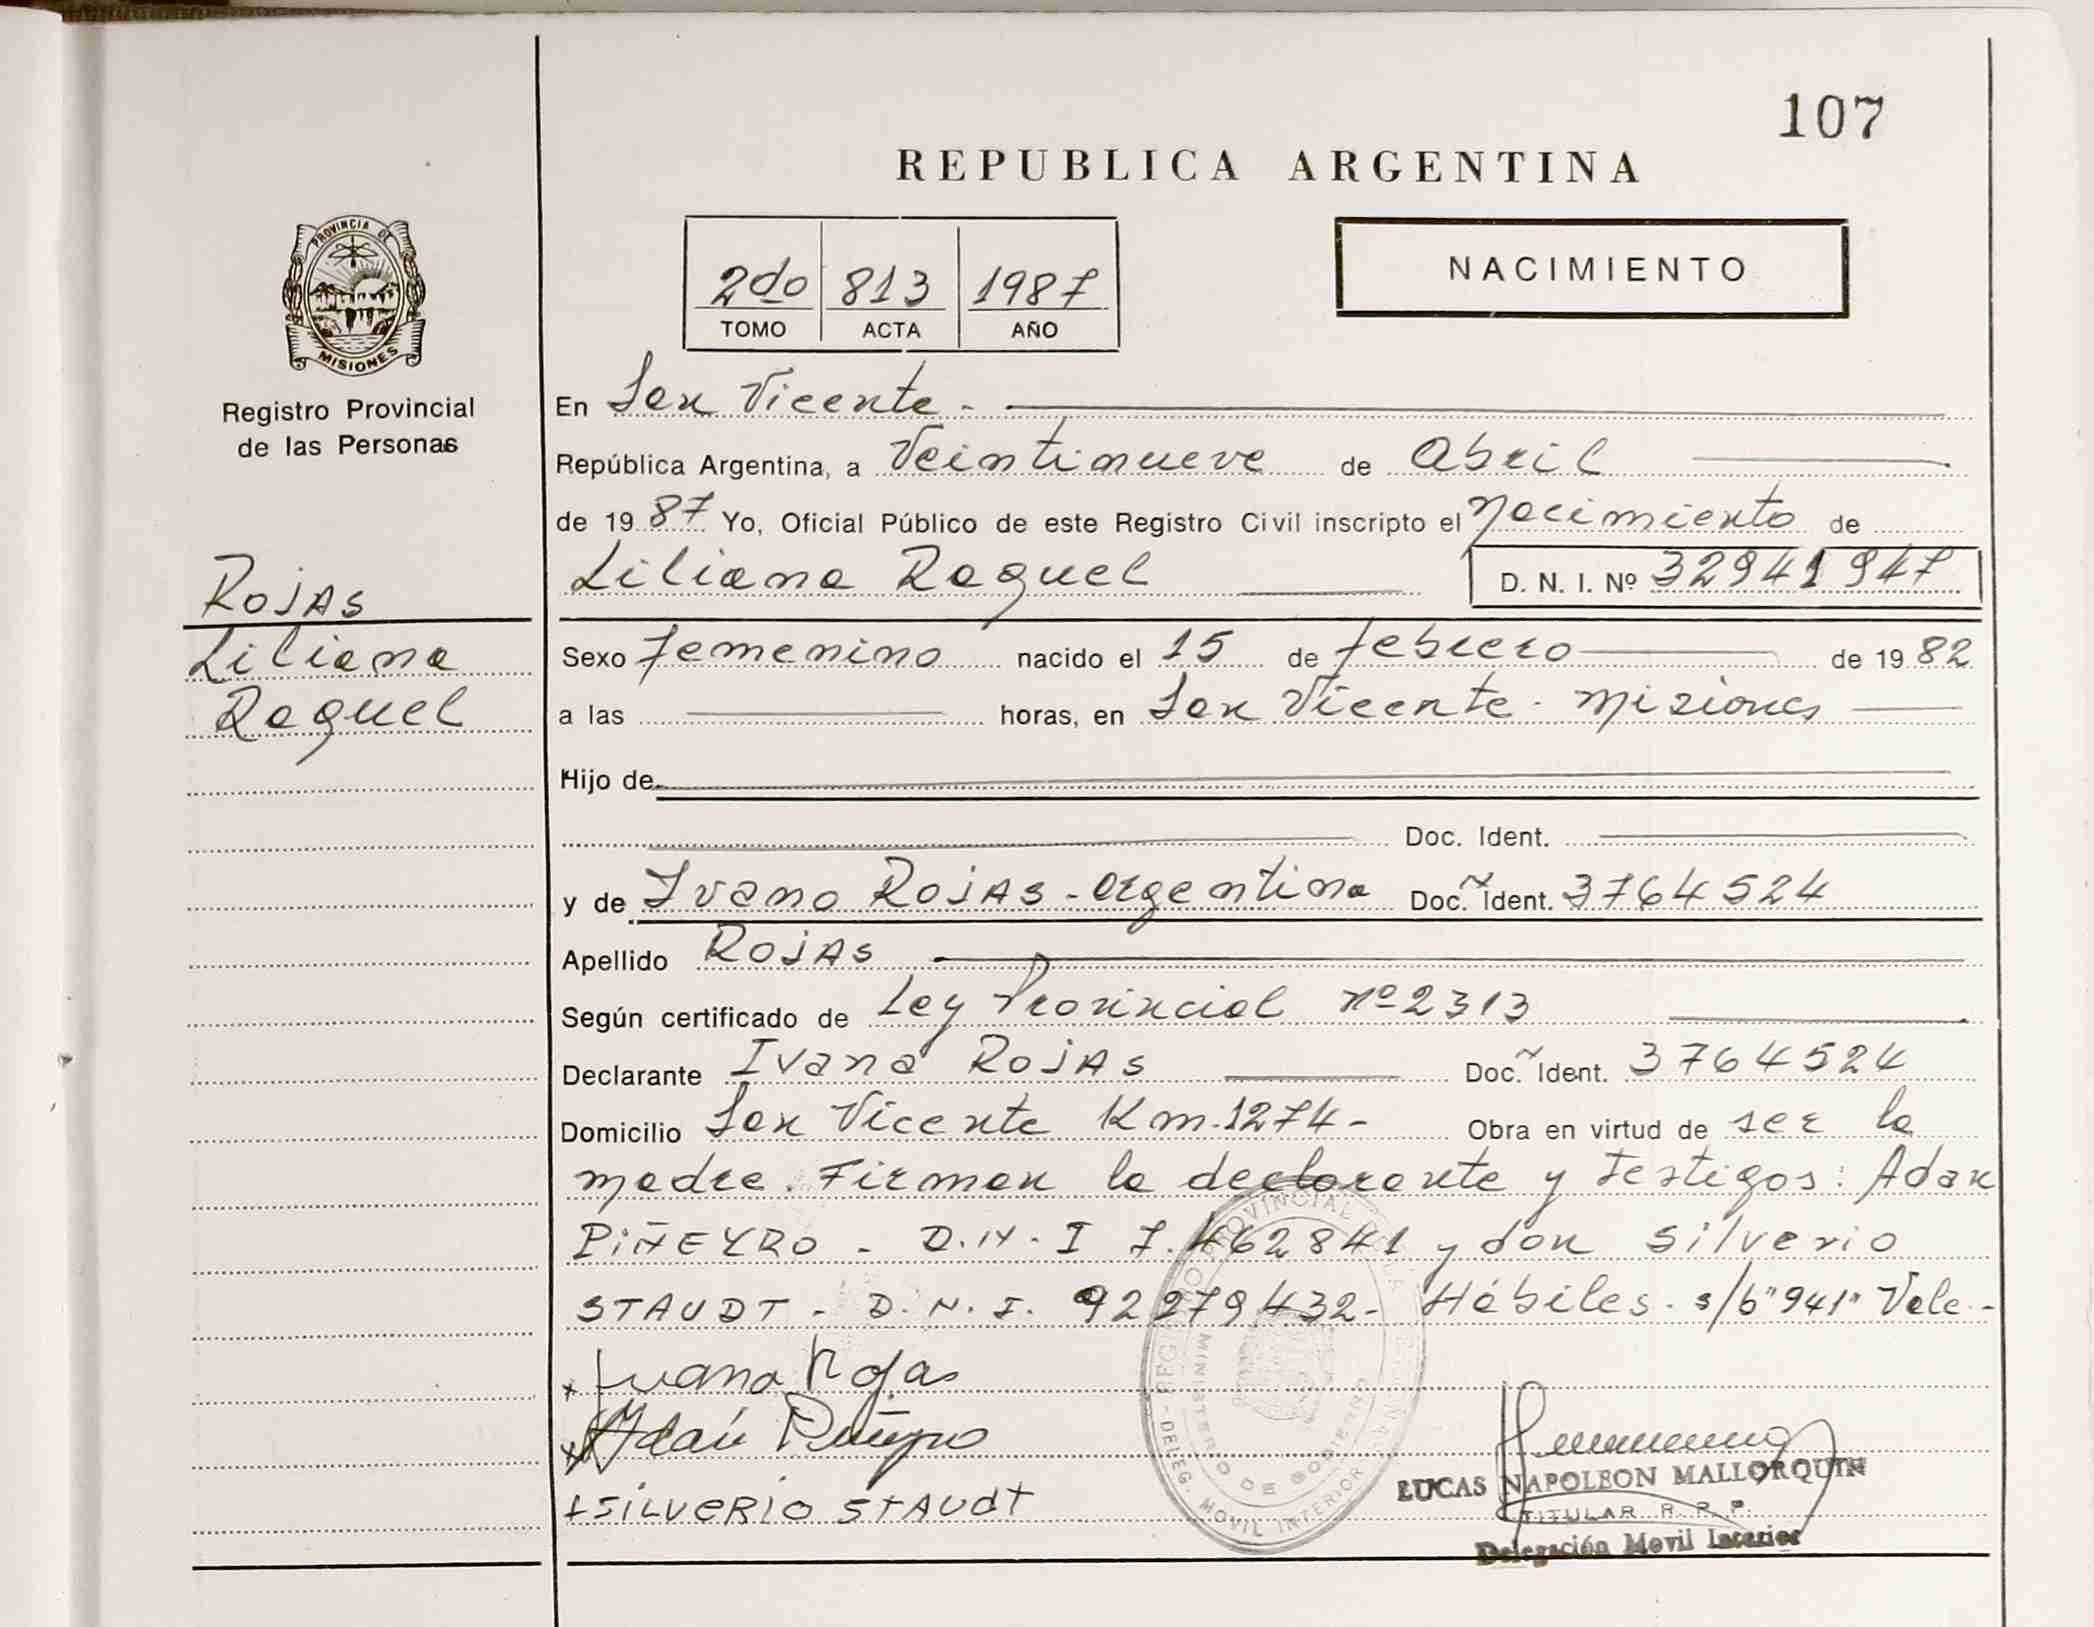 107
REPUBLICA ARGENTINA
PROVINCIA DE
MISIONES
Registro Provincial
de las Personas
2do 813 1987
TOMO ACTA AÑO
NACIMIENTO
En San Vicente -
República Argentina, a Veintinueve de Abril
de 19 87 Yo, Oficial Público de este Registro Civil inscripto el Nacimiento de
Liliana Raquel D. N. I. Nº 32941947
ROJAS
Liliana
Raquel
Sexo femenino nacido el 15 de febrero de 19 82
a las horas, en San Vicente - Misiones
Hijo de
Doc. Ident.
y de Ivana ROJAS - Argentina Doc. Ident. 3764524
Apellido ROJAS
Según certificado de Ley Provincial nº 2313
Declarante Ivana ROJAS Doc. Ident. 3764524
Domicilio San Vicente Km. 1274 - Obra en virtud de ser la
madre. Firman la declarante y testigos: Adan
PIÑEYRO - D.N.I 7.462841 y don Silverio
STAUDT - D.N.I. 92279432 - Hábiles. s/b "941" Vale -
x Ivana Rojas
x Adán Piñeyro
+ SILVERIO STAUdT
REGISTRO PROVINCIAL DE LAS PERSONAS
MINISTERIO DE GOBIERNO
DELEG. MOVIL INTERIOR
LUCAS NAPOLEON MALLORQUIN
TITULAR R. P. P.
Delegación Movil Interior